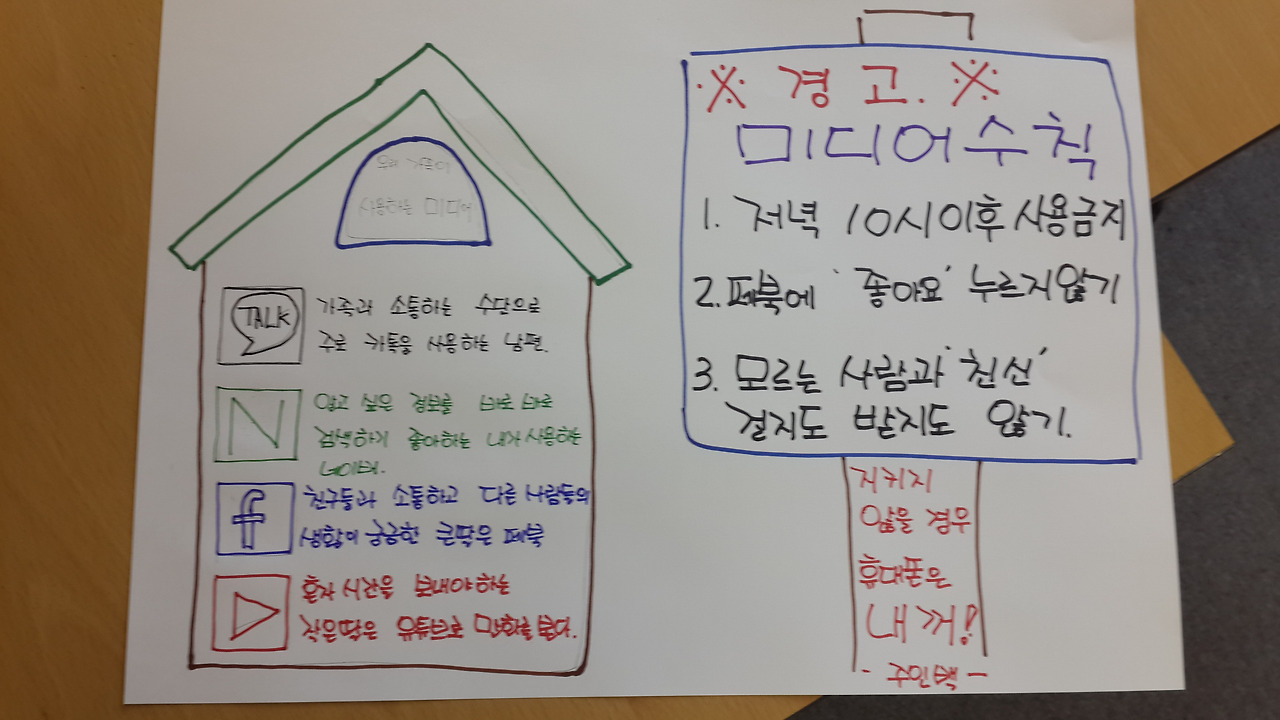 우리 가족이
사용하는 미디어
TALK
가족과 소통하는 수단으로
주로 카톡을 사용하는 남편.
N
알고 싶은 정보를 바로 바로
검색하기 좋아하는 내가 사용하는
네이버.
f
친구들과 소통하고 다른 사람들의
생활이 궁금한 큰딸은 페북
혼자 시간을 보내야하는
작은딸은 유튜브로 만화를 본다.
※ 경고. ※
미디어수칙
1. 저녁 10시이후 사용금지
2. 페북에 '좋아요' 누르지않기
3. 모르는 사람과 '친신'
걸지도 받지도 않기.
지키지
않을 경우
휴대폰은
내 꺼!
- 주인백 -